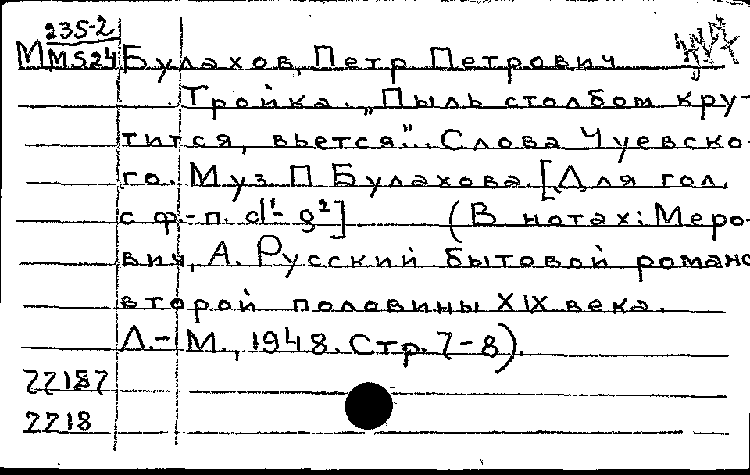 235-2
М М524 Булахов, Петр Петрович
Тройка. „Пыль столбом кру-
тится, вьется"... Слова Чуевско-
го. Муз. П. Булахова. [Для гол.
с ф.-п. d¹- g²] (В нотах: Меро-
вич, А. Русский бытовой романс
второй половины XIX века.
Л.-М., 1948. Стр. 7-8).